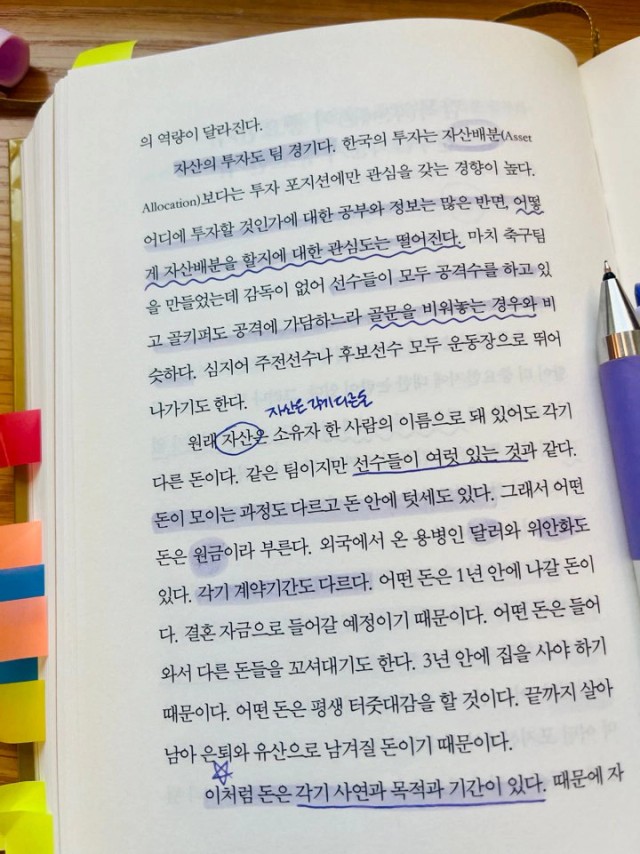 의 역량이 달라진다.
자산의 투자도 팀 경기다. 한국의 투자는 자산배분(Asset
Allocation)보다는 투자 포지션에만 관심을 갖는 경향이 높다.
어디에 투자할 것인가에 대한 공부와 정보는 많은 반면, 어떻
게 자산배분을 할지에 대한 관심도는 떨어진다. 마치 축구팀
을 만들었는데 감독이 없어 선수들이 모두 공격수를 하고 있
고 골키퍼도 공격에 가담하느라 골문을 비워놓는 경우와 비
슷하다. 심지어 주전선수나 후보선수 모두 운동장으로 뛰어
나가기도 한다.
자산은 각기 다른돈
원래 자산은 소유자 한 사람의 이름으로 돼 있어도 각기
다른 돈이다. 같은 팀이지만 선수들이 여럿 있는 것과 같다.
돈이 모이는 과정도 다르고 돈 안에 텃세도 있다. 그래서 어떤
돈은 원금이라 부른다. 외국에서 온 용병인 달러와 위안화도
있다. 각기 계약기간도 다르다. 어떤 돈은 1년 안에 나갈 돈이
다. 결혼 자금으로 들어갈 예정이기 때문이다. 어떤 돈은 들어
와서 다른 돈들을 꼬셔대기도 한다. 3년 안에 집을 사야 하기
때문이다. 어떤 돈은 평생 터줏대감을 할 것이다. 끝까지 살아
남아 은퇴와 유산으로 남겨질 돈이기 때문이다.
이처럼 돈은 각기 사연과 목적과 기간이 있다. 때문에 자